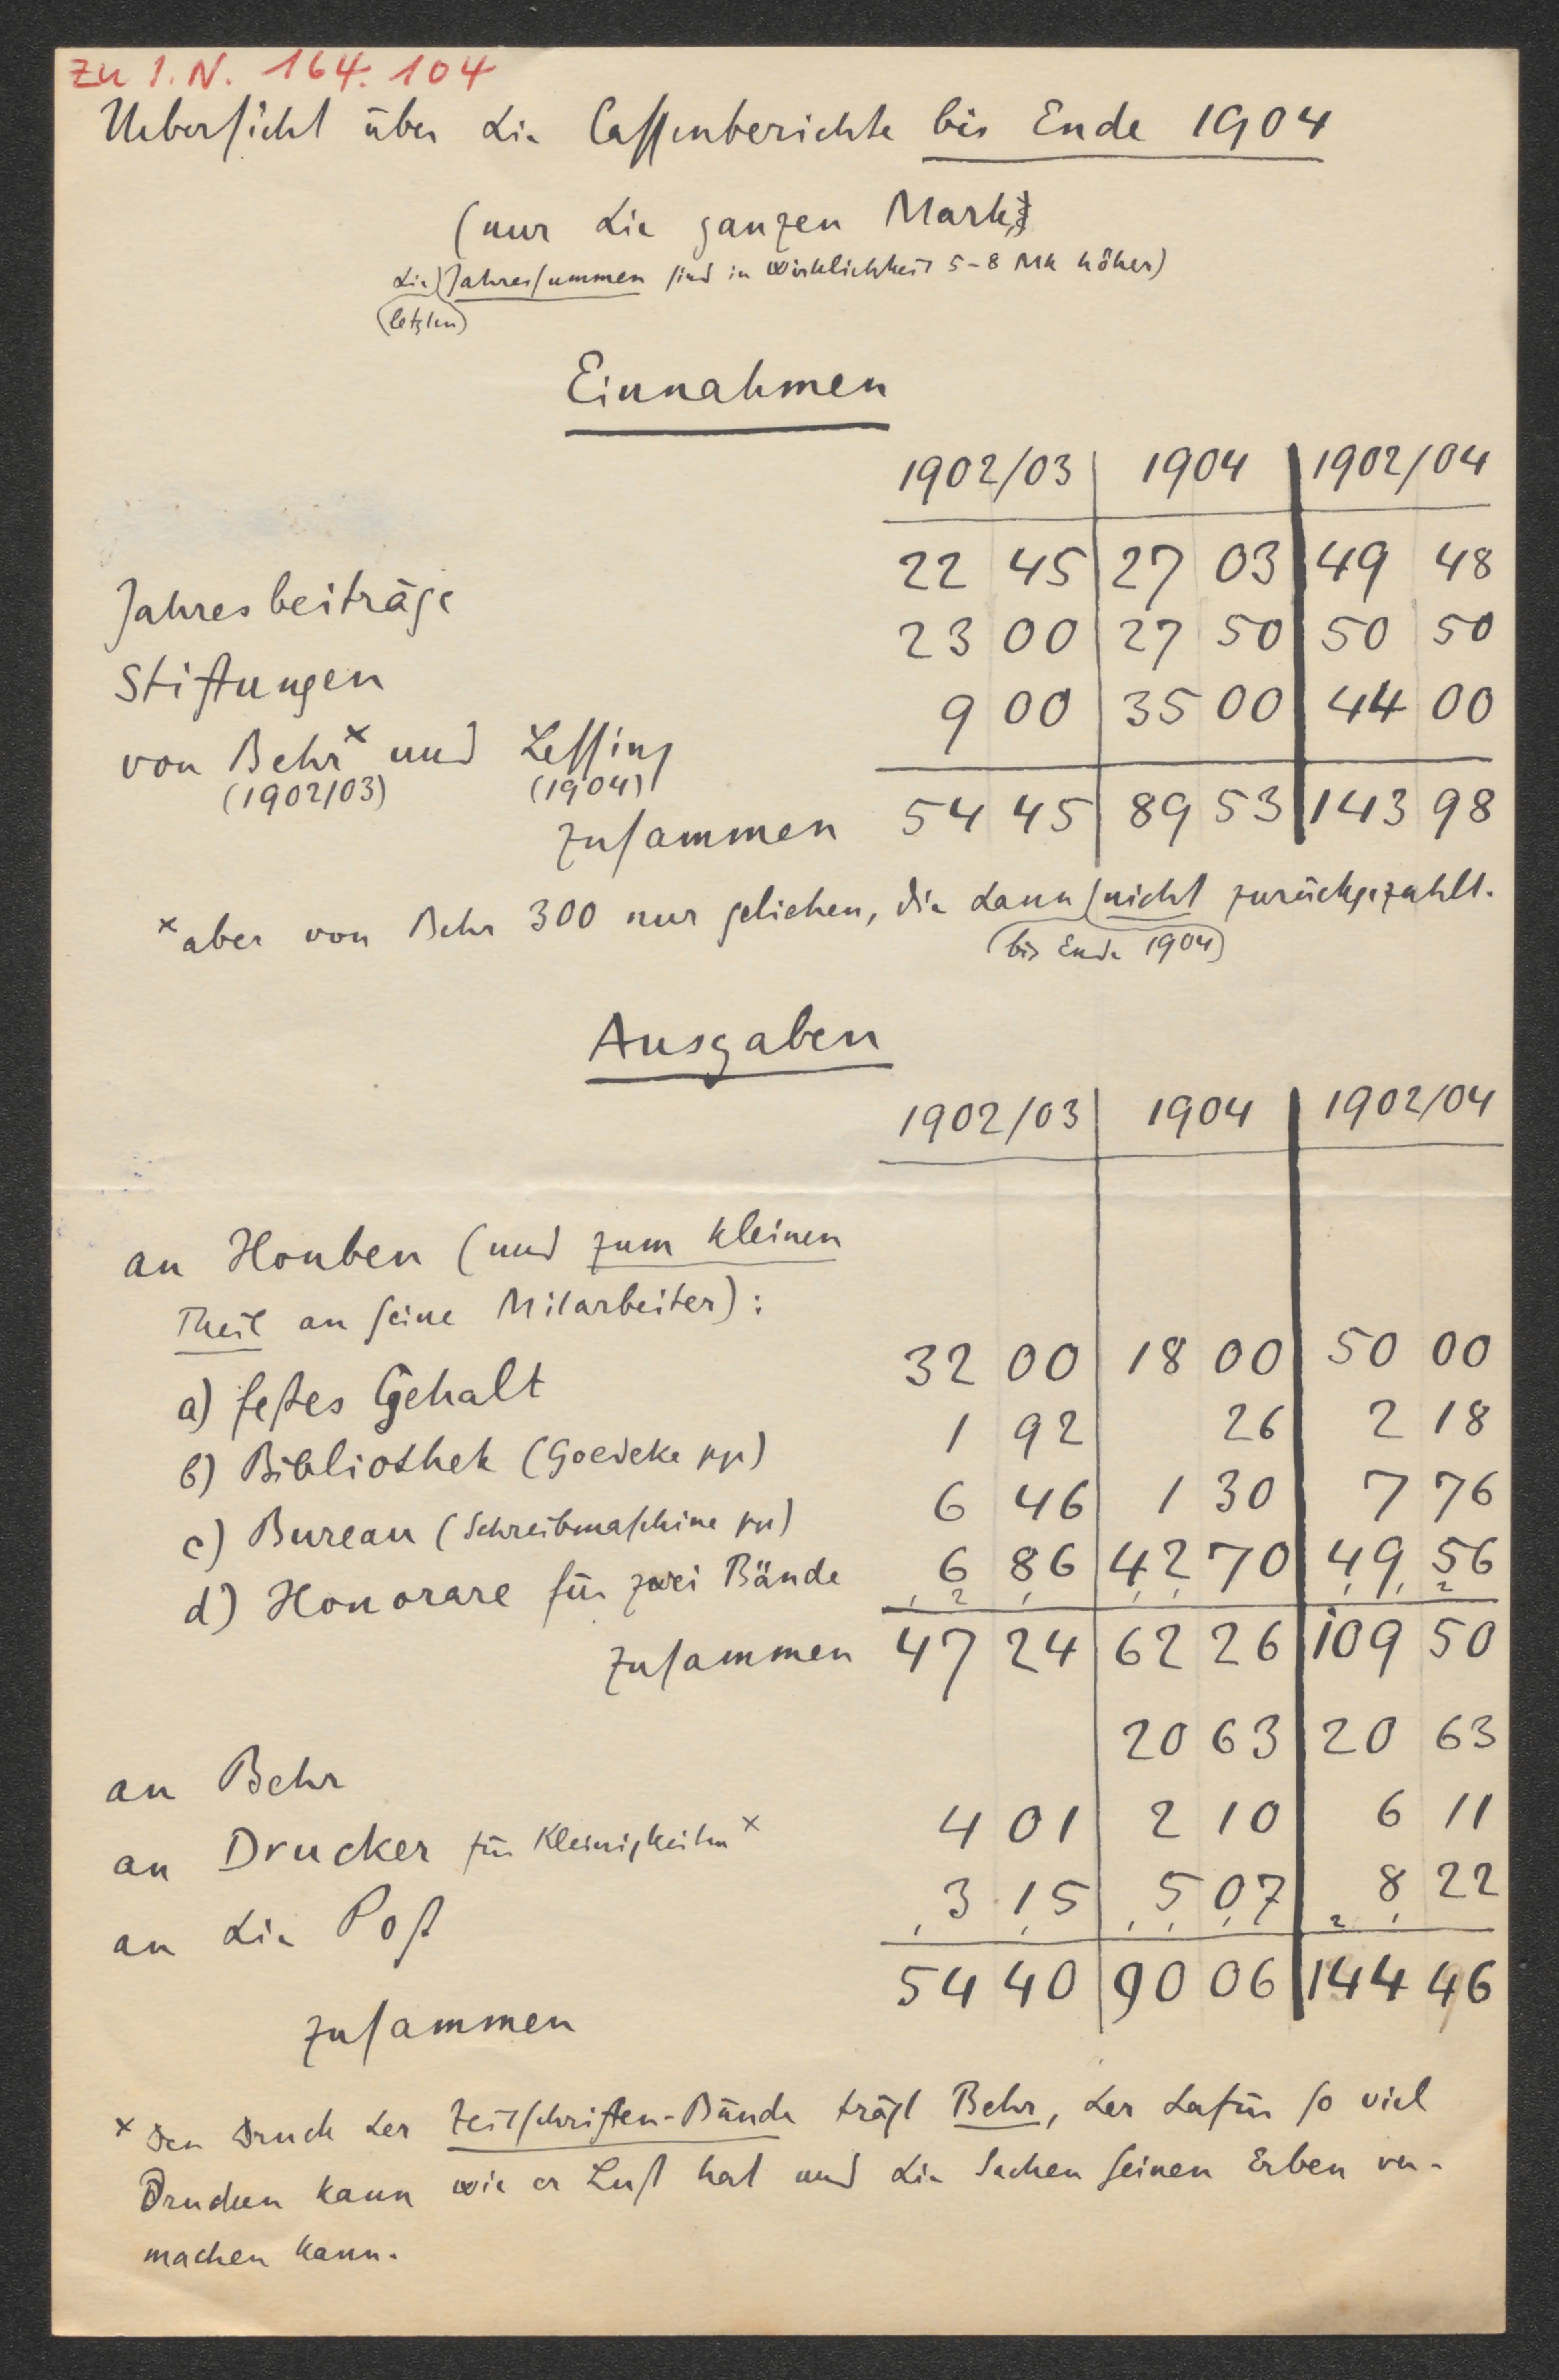 Zu I.N. 164.104
Uebersicht über die Cassenberichte bis Ende 1904
(nur die ganzen Mark;
die Jahressummen sind in Wirklichkeit 5-8 Mk höher)
(letzten)
Einnahmen
1902/03 1904 1902/04
Jahresbeiträge 22 45 27 03 49 48
Stiftungen 23 00 27 50 50 50
von Behr x und Lessing 9 00 35 00 44 00
(1902/03) (1904)
zusammen 54 45 89 53 143 98
x aber von Behr 300 nur geliehen, die dann nicht zurückgezahlt.
(bis Ende 1904)
Ausgaben
1902/03 1904 1902/04
an Houben (und zum kleinen
Theil an seine Mitarbeiter):
a) festes Gehalt 32 00 18 00 50 00
b) Bibliothek (Goedeke pp) 1 92 26 2 18
c) Bureau (Schreibmaschine pp) 6 46 1 30 7 76
d) Honorare für zwei Bände 6 86 42 70 49 56
zusammen 47 24 62 26 109 50
an Behr 20 63 20 63
an Drucker für Kleinigkeiten x 4 01 2 10 6 11
an die Post 3 15 5 07 8 22
zusammen 54 40 90 06 144 46
x Den Druck der Zeitschriften-Bände trägt Behr, der dafür so viel
Drucken kann wie er Lust hat und die Sachen seinen Erben ver-
machen kann.